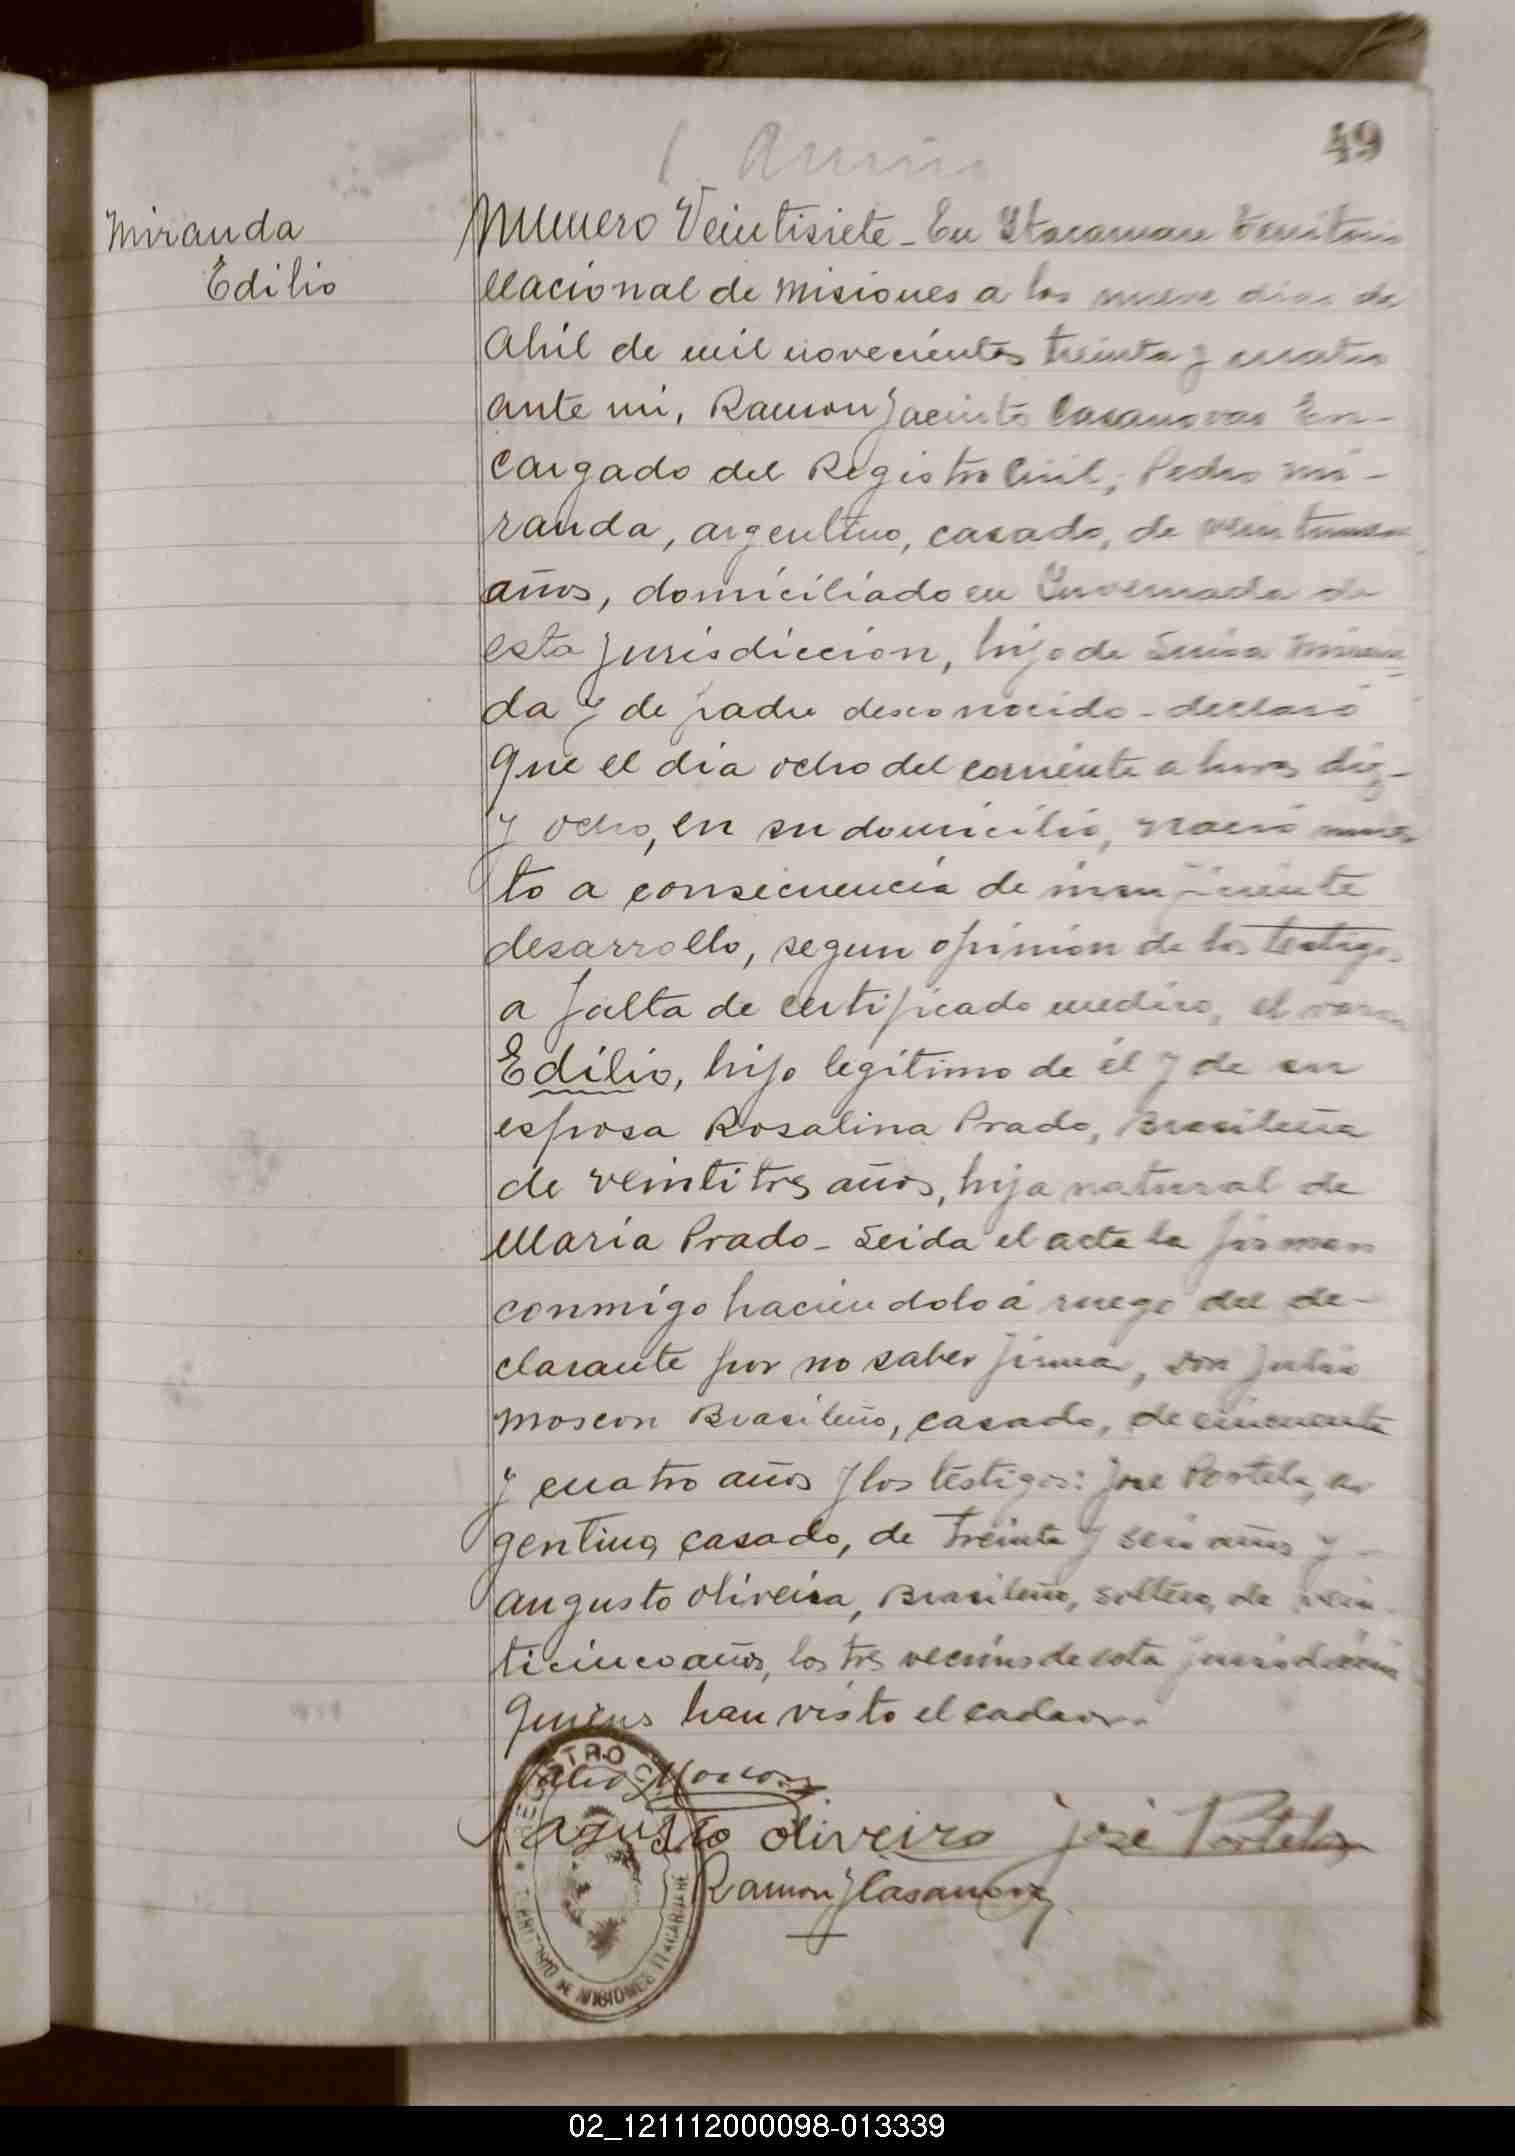 49
Miranda
Edilio
Numero Veintisiete - En Itacaruare Territorio
Nacional de Misiones a los nueve dias de
Abril de mil novecientos treinta y cuatro
ante mi, Ramon Jacinto Casanovas En-
cargado del Registro Civil, Pedro Mi-
randa, argentino, casado, de
años, domiciliado en Invernada de
esta jurisdiccion, hijo de Luisa Miran
da y de padre desconocido - declaró
que el dia ocho del corriente a horas diez
y ocho, en su domicilio, nació muer
to a consecuencia de insuficiente
desarrollo, segun opinion de los testigos
a falta de certificado medico, el varon
Edilio, hijo legitimo de él y de su
esposa Rosalina Prado, Brasileña
de veintitres años, hija natural de
Maria Prado - Leida el acta la firman
conmigo haciendolo á ruego del de-
clarante por no saber firmar, don Julio
Moscon Brasileño, casado, de cincuenta
y cuatro años y los testigos: José Portela, ar
gentino, casado, de treinta y seis años y
Augusto Oliveira, Brasileño, soltero, de vein
ticinco años, los tres vecinos de esta jurisdiccion
quienes han visto el cadaver.
Julio Moscon
Agusto Oliveira José Portela
Ramon J Casanovas
REGISTRO CIVIL
TERRITORIO DE MISIONES ITACARUARE
02_121112000098-013339